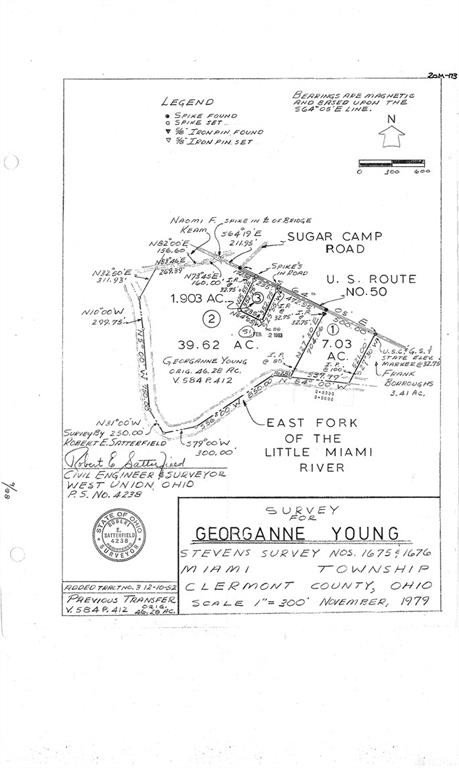 20M-173
BEARINGS ARE MAGNETIC
AND BASED UPON THE
S64°05'E LINE.
LEGEND
SPIKE FOUND
SPIKE SET
5/8" IRON PIN FOUND
5/8" IRON PIN SET
N
0 300 600
NAOMI F.
KEAM
SPIKE IN ℄ OF BRIDGE
S64°19'E
211.95'
N82°00'E
156.60
SUGAR CAMP
ROAD
269.39
N75°45'E
160.00
SPIKES
IN ROAD
N32°50'E
311.93'
U. S. ROUTE
NO. 50
1.903 AC.
3
32.75'
N10°00'W
299.75'
2
51
FEB 2 1983
1
39.62 AC.
7.03
AC.
500.00'
U.S.C. & G.S. &
STATE ELEV.
MARKER @ 32.75
GEORGANNE YOUNG
ORIG. 46.28 AC.
V. 584 P. 412
FRANK
BORROUGHS
3.41 AC.
537.77'
N 64°00' W
N31°00'W
250.00'
S79°00'W
300.00'
S56°00'W
EAST FORK
OF THE
LITTLE MIAMI
RIVER
SURVEY BY
ROBERT E. SATTERFIELD
Robert E Satterfield
CIVIL ENGINEER & SURVEYOR
WEST UNION, OHIO
P.S. NO. 4238
9/08
STATE OF OHIO
ROBERT
E.
SATTERFIELD
4238
REGISTERED
SURVEYOR
SURVEY
FOR
GEORGANNE YOUNG
STEVENS SURVEY NOS. 1675 & 1676
MIAMI TOWNSHIP
CLERMONT COUNTY, OHIO
SCALE 1"=300' NOVEMBER, 1979
ADDED TRACT NO. 3 12-10-82
PREVIOUS TRANSFER
V. 584 P. 412 ORIG. 46.28 AC.